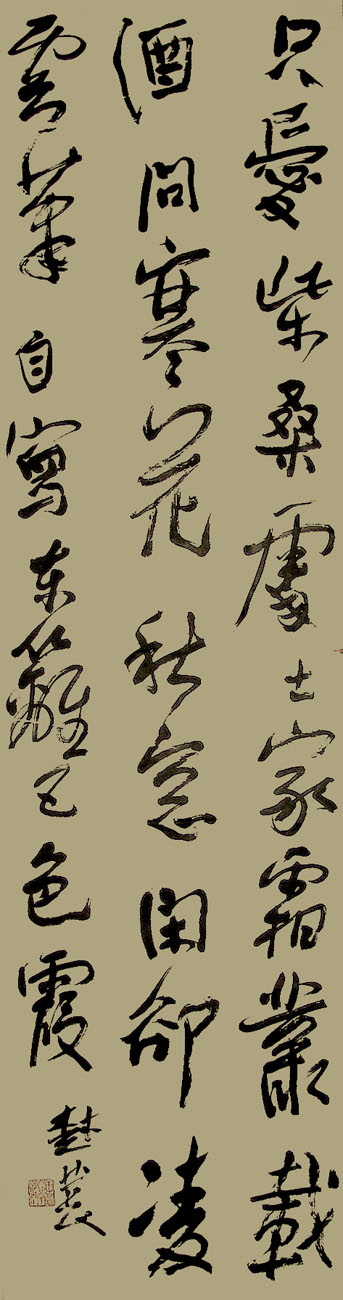 只愛柴桑處士家霜叢載
酒問寒花秋窓閑卻凌
雲筆自寫東籬五色霞